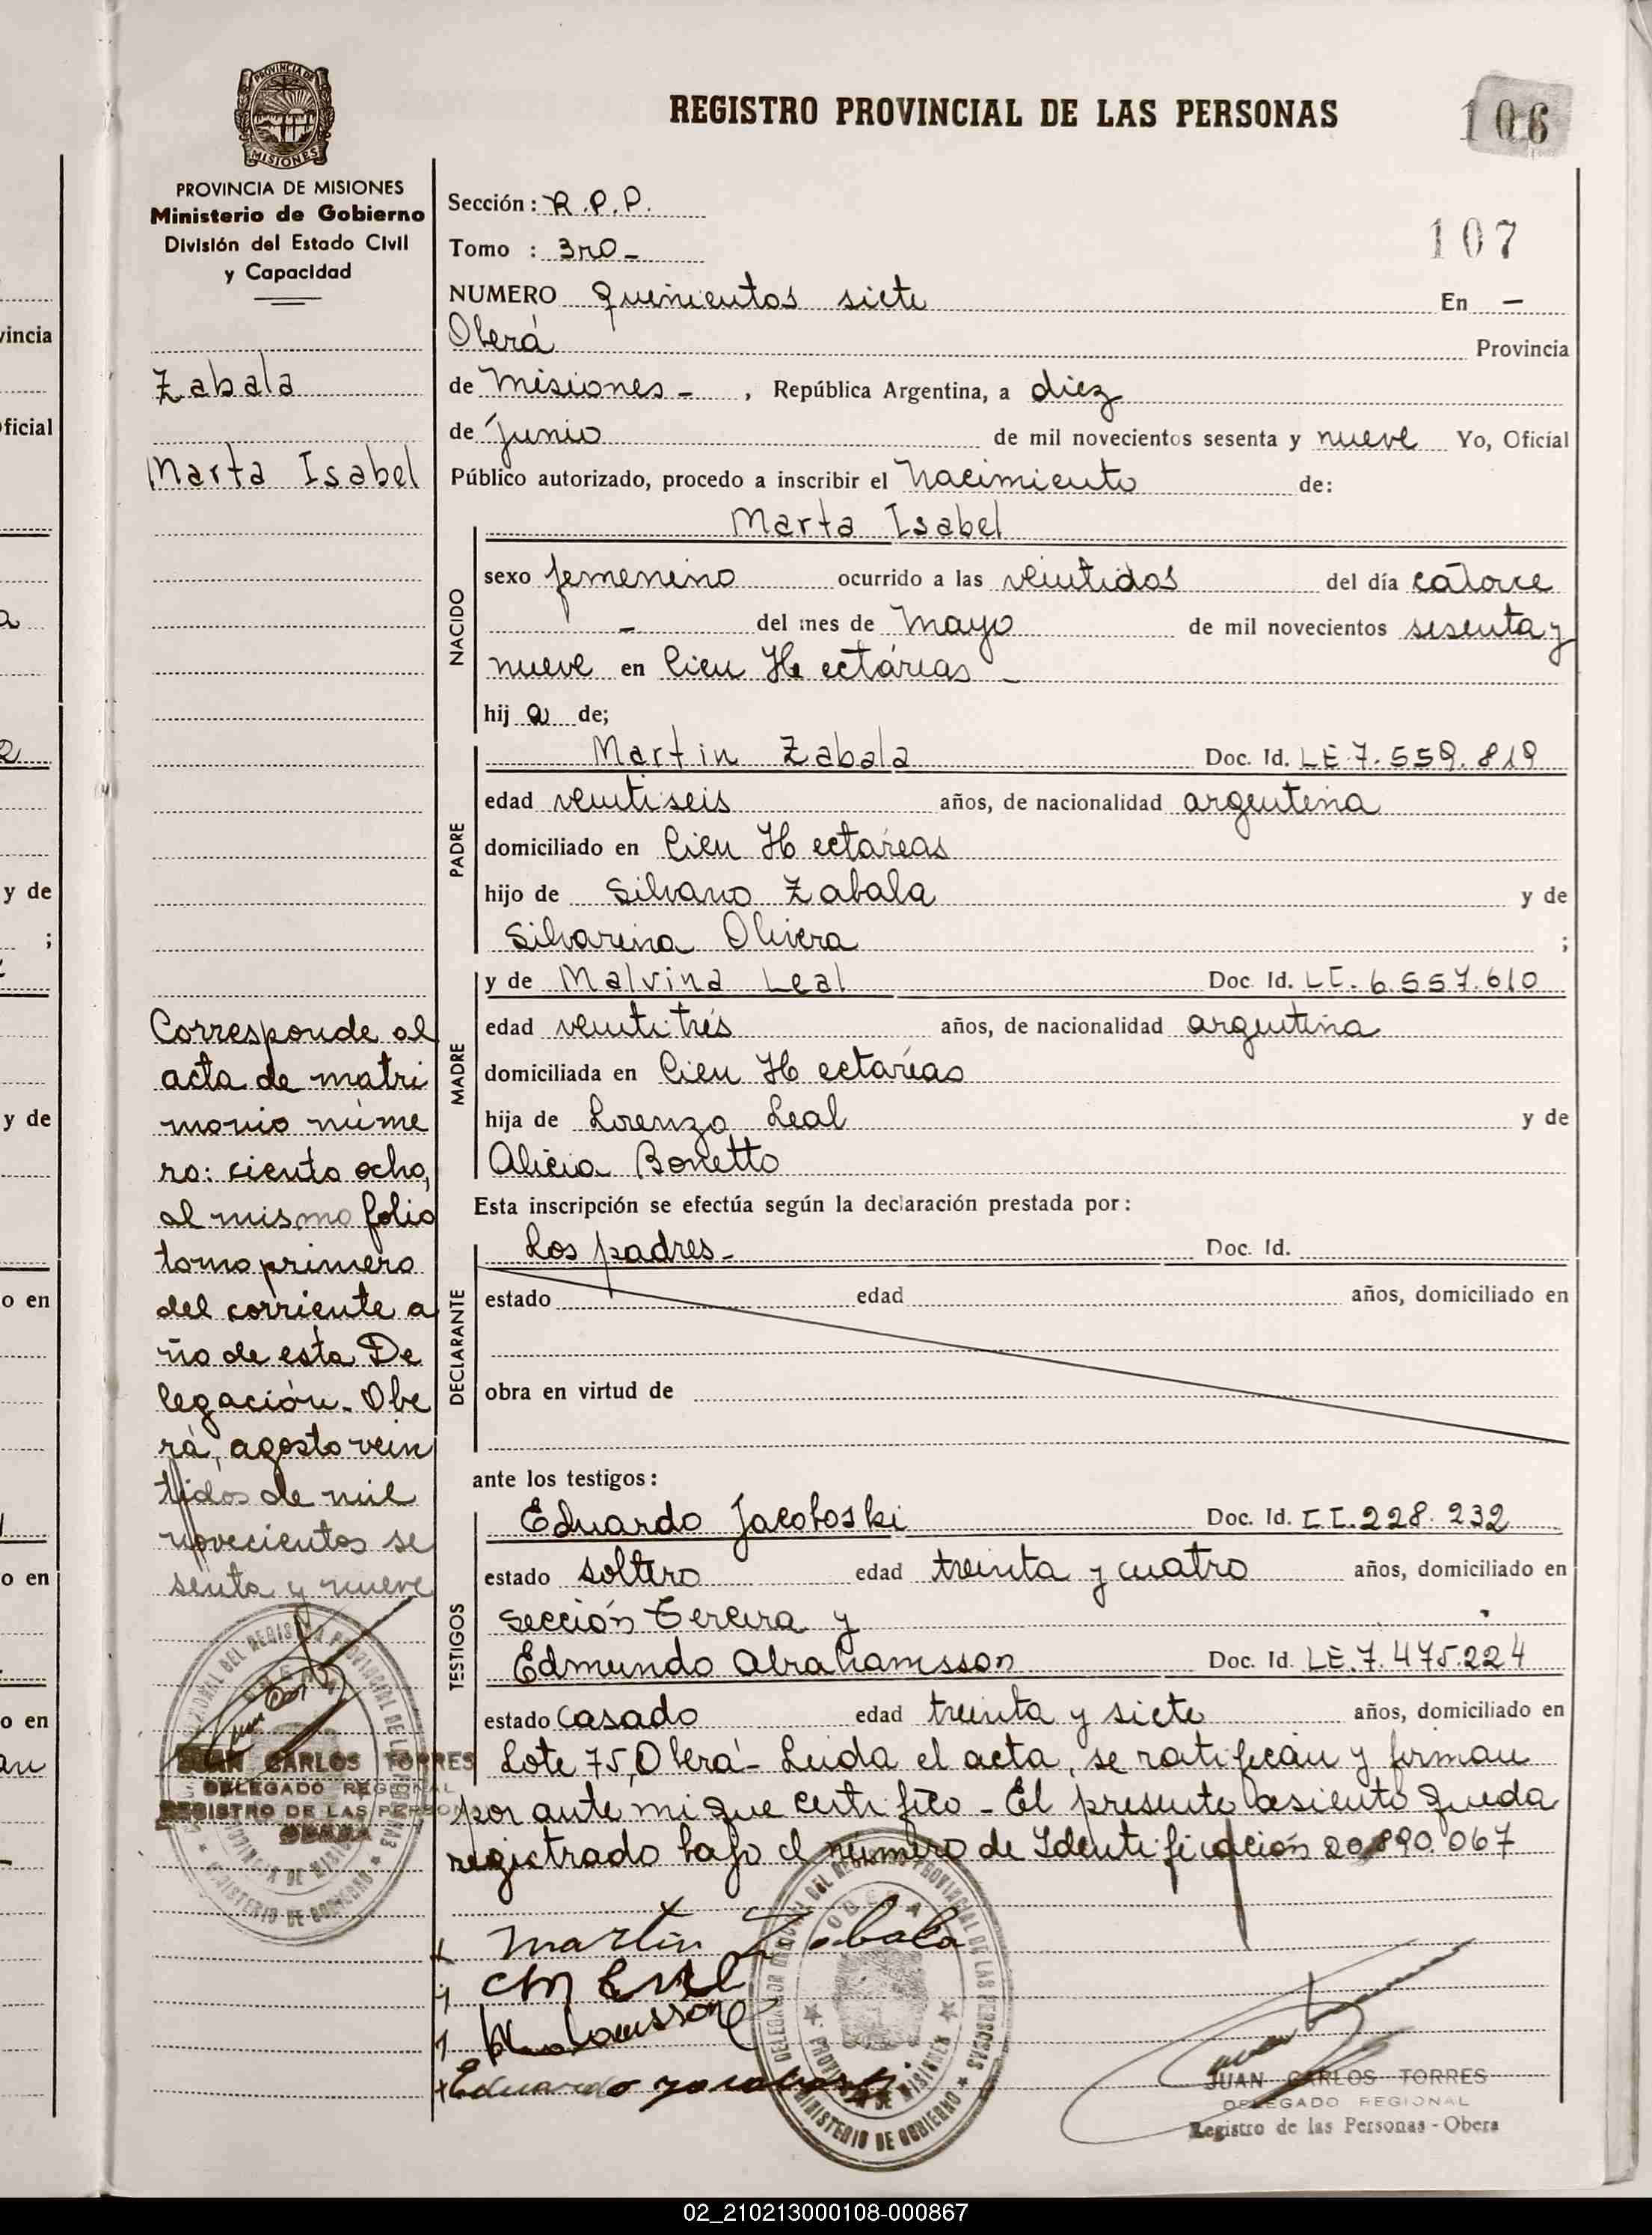 PROVINCIA DE
MISIONES
PROVINCIA DE MISIONES
Ministerio de Gobierno
División del Estado Civil
y Capacidad
REGISTRO PROVINCIAL DE LAS PERSONAS
106
107
Sección: R.P.P.
Tomo : 3ro-
NUMERO Quinientos siete En -
Oberá Provincia
de Misiones - , República Argentina, a diez
de Junio de mil novecientos sesenta y nueve Yo, Oficial
Público autorizado, procedo a inscribir el Nacimiento de:
Zabala
Marta Isabel
NACIDO
Marta Isabel
sexo femenino ocurrido a las veintidos del día catorce
- del mes de Mayo de mil novecientos sesenta y
nueve en Cien Hectáreas -
hij a de;
PADRE
Martin Zabala Doc. Id. LE 7.559.819
edad veintiseis años, de nacionalidad argentina
domiciliado en Cien Hectáreas
hijo de Silvano Zabala y de
Silvarina Olivera ;
MADRE
y de Malvina Leal Doc. Id. LC. 6.557.610
edad veintitrés años, de nacionalidad argentina
domiciliada en Cien Hectáreas
hija de Lorenzo Leal y de
Alicia Bonetto
Esta inscripción se efectúa según la declaración prestada por:
DECLARANTE
Los padres- Doc. Id.
estado edad años, domiciliado en
obra en virtud de
ante los testigos:
TESTIGOS
Eduardo Jacoboski Doc. Id. CI. 228.232
estado soltero edad treinta y cuatro años, domiciliado en
sección tercera y
Edmundo Abrahamsson Doc. Id. LE.7.475.224
estado casado edad treinta y siete años, domiciliado en
Lote 75, Oberá- Leida el acta, se ratifican y firman
por ante mi que certifico - El presente asiento queda
registrado bajo el número de Identificación 20.890.067
Corresponde al
acta de matri
monio núme
ro: ciento ocho,
al mismo folio
tomo primero
del corriente a
ño de esta De
legación- Obe
rá, agosto vein
tidos de mil
novecientos se
senta y nueve
JUAN CARLOS TORRES
DELEGADO REGIONAL
REGISTRO DE LAS PERSONAS
OBERA
Martin Zabala
Eduardo
DELEGACION REGIONAL DEL REGISTRO PROVINCIAL DE LAS PERSONAS
OBERA
PROVINCIA DE MISIONES
MINISTERIO DE GOBIERNO
JUAN CARLOS TORRES
DELEGADO REGIONAL
Registro de las Personas - Obera
vincia
oficial
y de
;
y de
o en
o en
o en
02_210213000108-000867